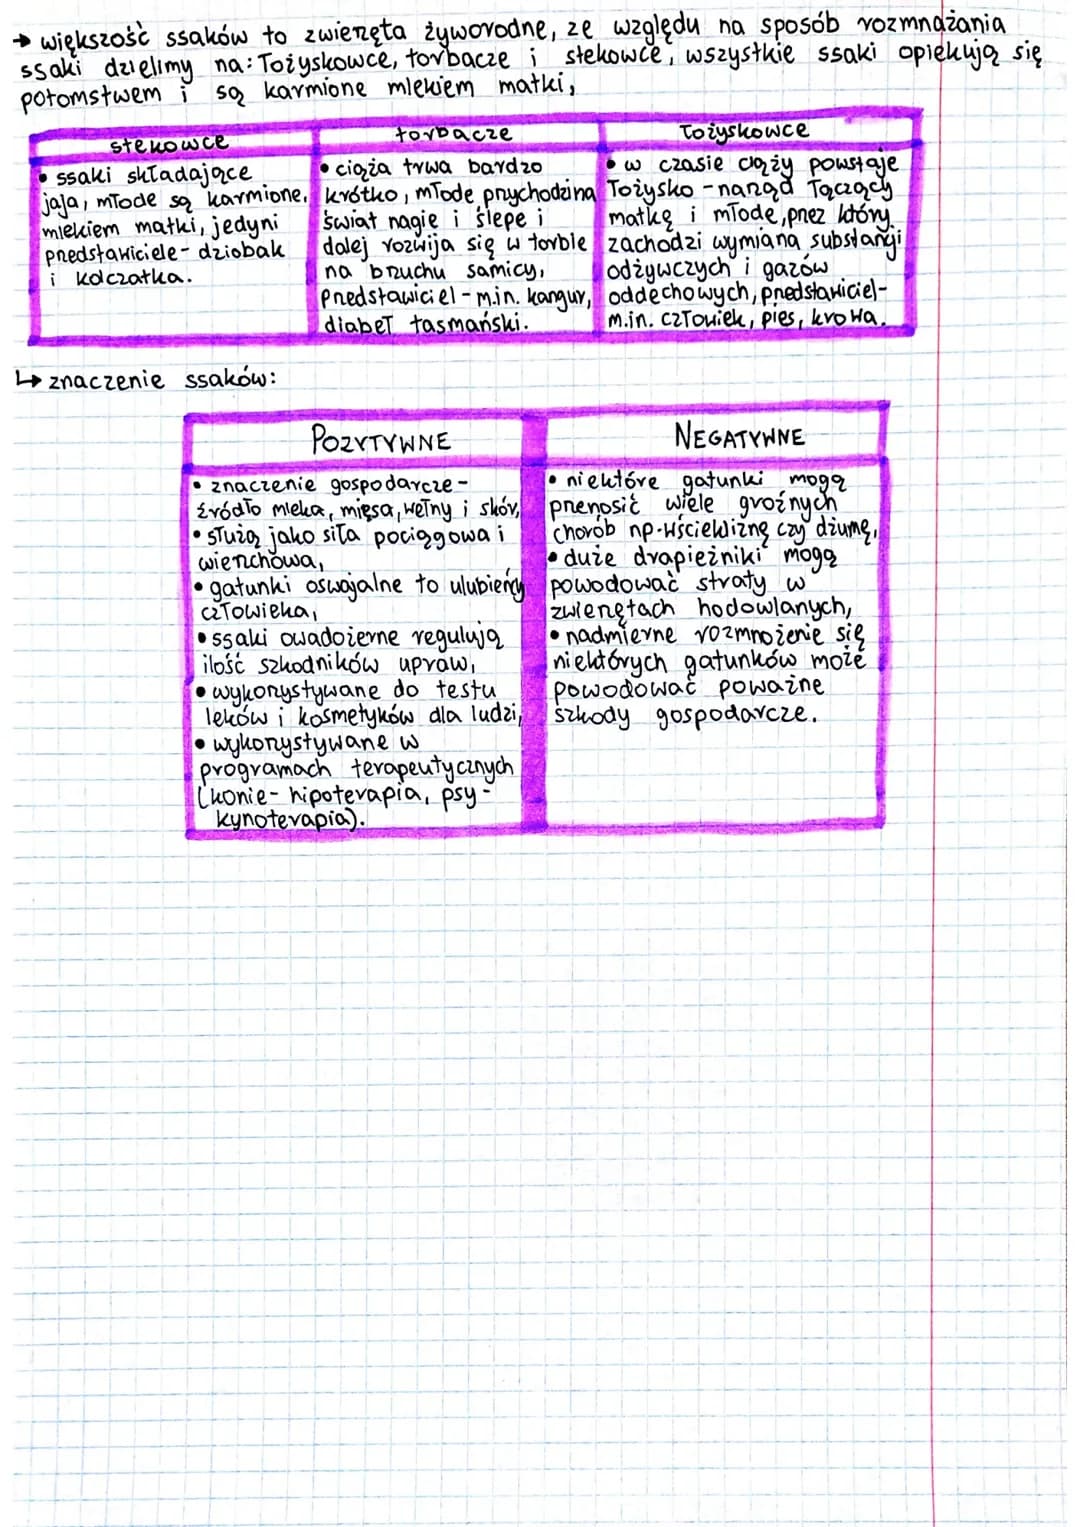 → większość ssaków to zwierzęta żyworodne, ze względu na sposób rozmnażania
ssaki dzielimy na: łożyskowce, torbacze i stekowce, wszystkie ssaki opiekują się
potomstwem i są karmione mlekiem matki,
stekowce
• ssaki składające
jaja, młode są karmione
mlekiem matki, jedyni
przedstawiciele - dziobak
i kolczatka.
torbacze
• ciąża trwa bardzo
krótko, młode przychodzi na
świat nagie i ślepe i
dalej rozwija się w torbie
na brzuchu samicy,
przedstawiciel - m.in. kangur,
diabeł tasmański.
łożyskowce
• w czasie ciąży powstaje
łożysko - narząd łączący
matkę i młode, przez który
zachodzi wymiana substancji
odżywczych i gazów
oddechowych, przedstawiciel -
m.in. człowiek, pies, krowa.
↳ znaczenie ssaków:
POZYTYWNE
• znaczenie gospodarcze -
źródło mleka, mięsa, wełny i skór,
• służą jako siła pociągowa i
wierzchowa,
• gatunki oswajalne to ulubieńcy
człowieka,
• ssaki owadożerne regulują
ilość szkodników upraw,
• wykorzystywane do testu
leków i kosmetyków dla ludzi,
• wykorzystywane w
programach terapeutycznych
(konie - hipoterapia, psy -
kynoterapia).
NEGATYWNE
• niektóre gatunki mogą
przenosić wiele groźnych
chorób np - wściekliznę czy dżumę,
• duże drapieżniki mogą
powodować straty w
zwierzętach hodowlanych,
• nadmierne rozmnożenie się
niektórych gatunków może
powodować poważne
szkody gospodarcze.